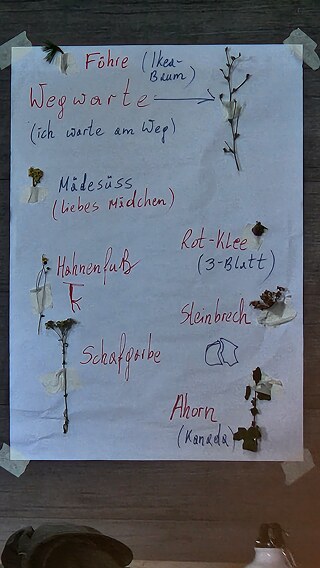 Föhre (Ikea-
Baum)
Wegwarte
(ich warte am Weg)
Mädesüss
(liebes Mädchen)
Rot-Klee
(3-Blatt)
Hahnenfuß
Steinbrech
Schafgarbe
Ahorn
(Kanada)